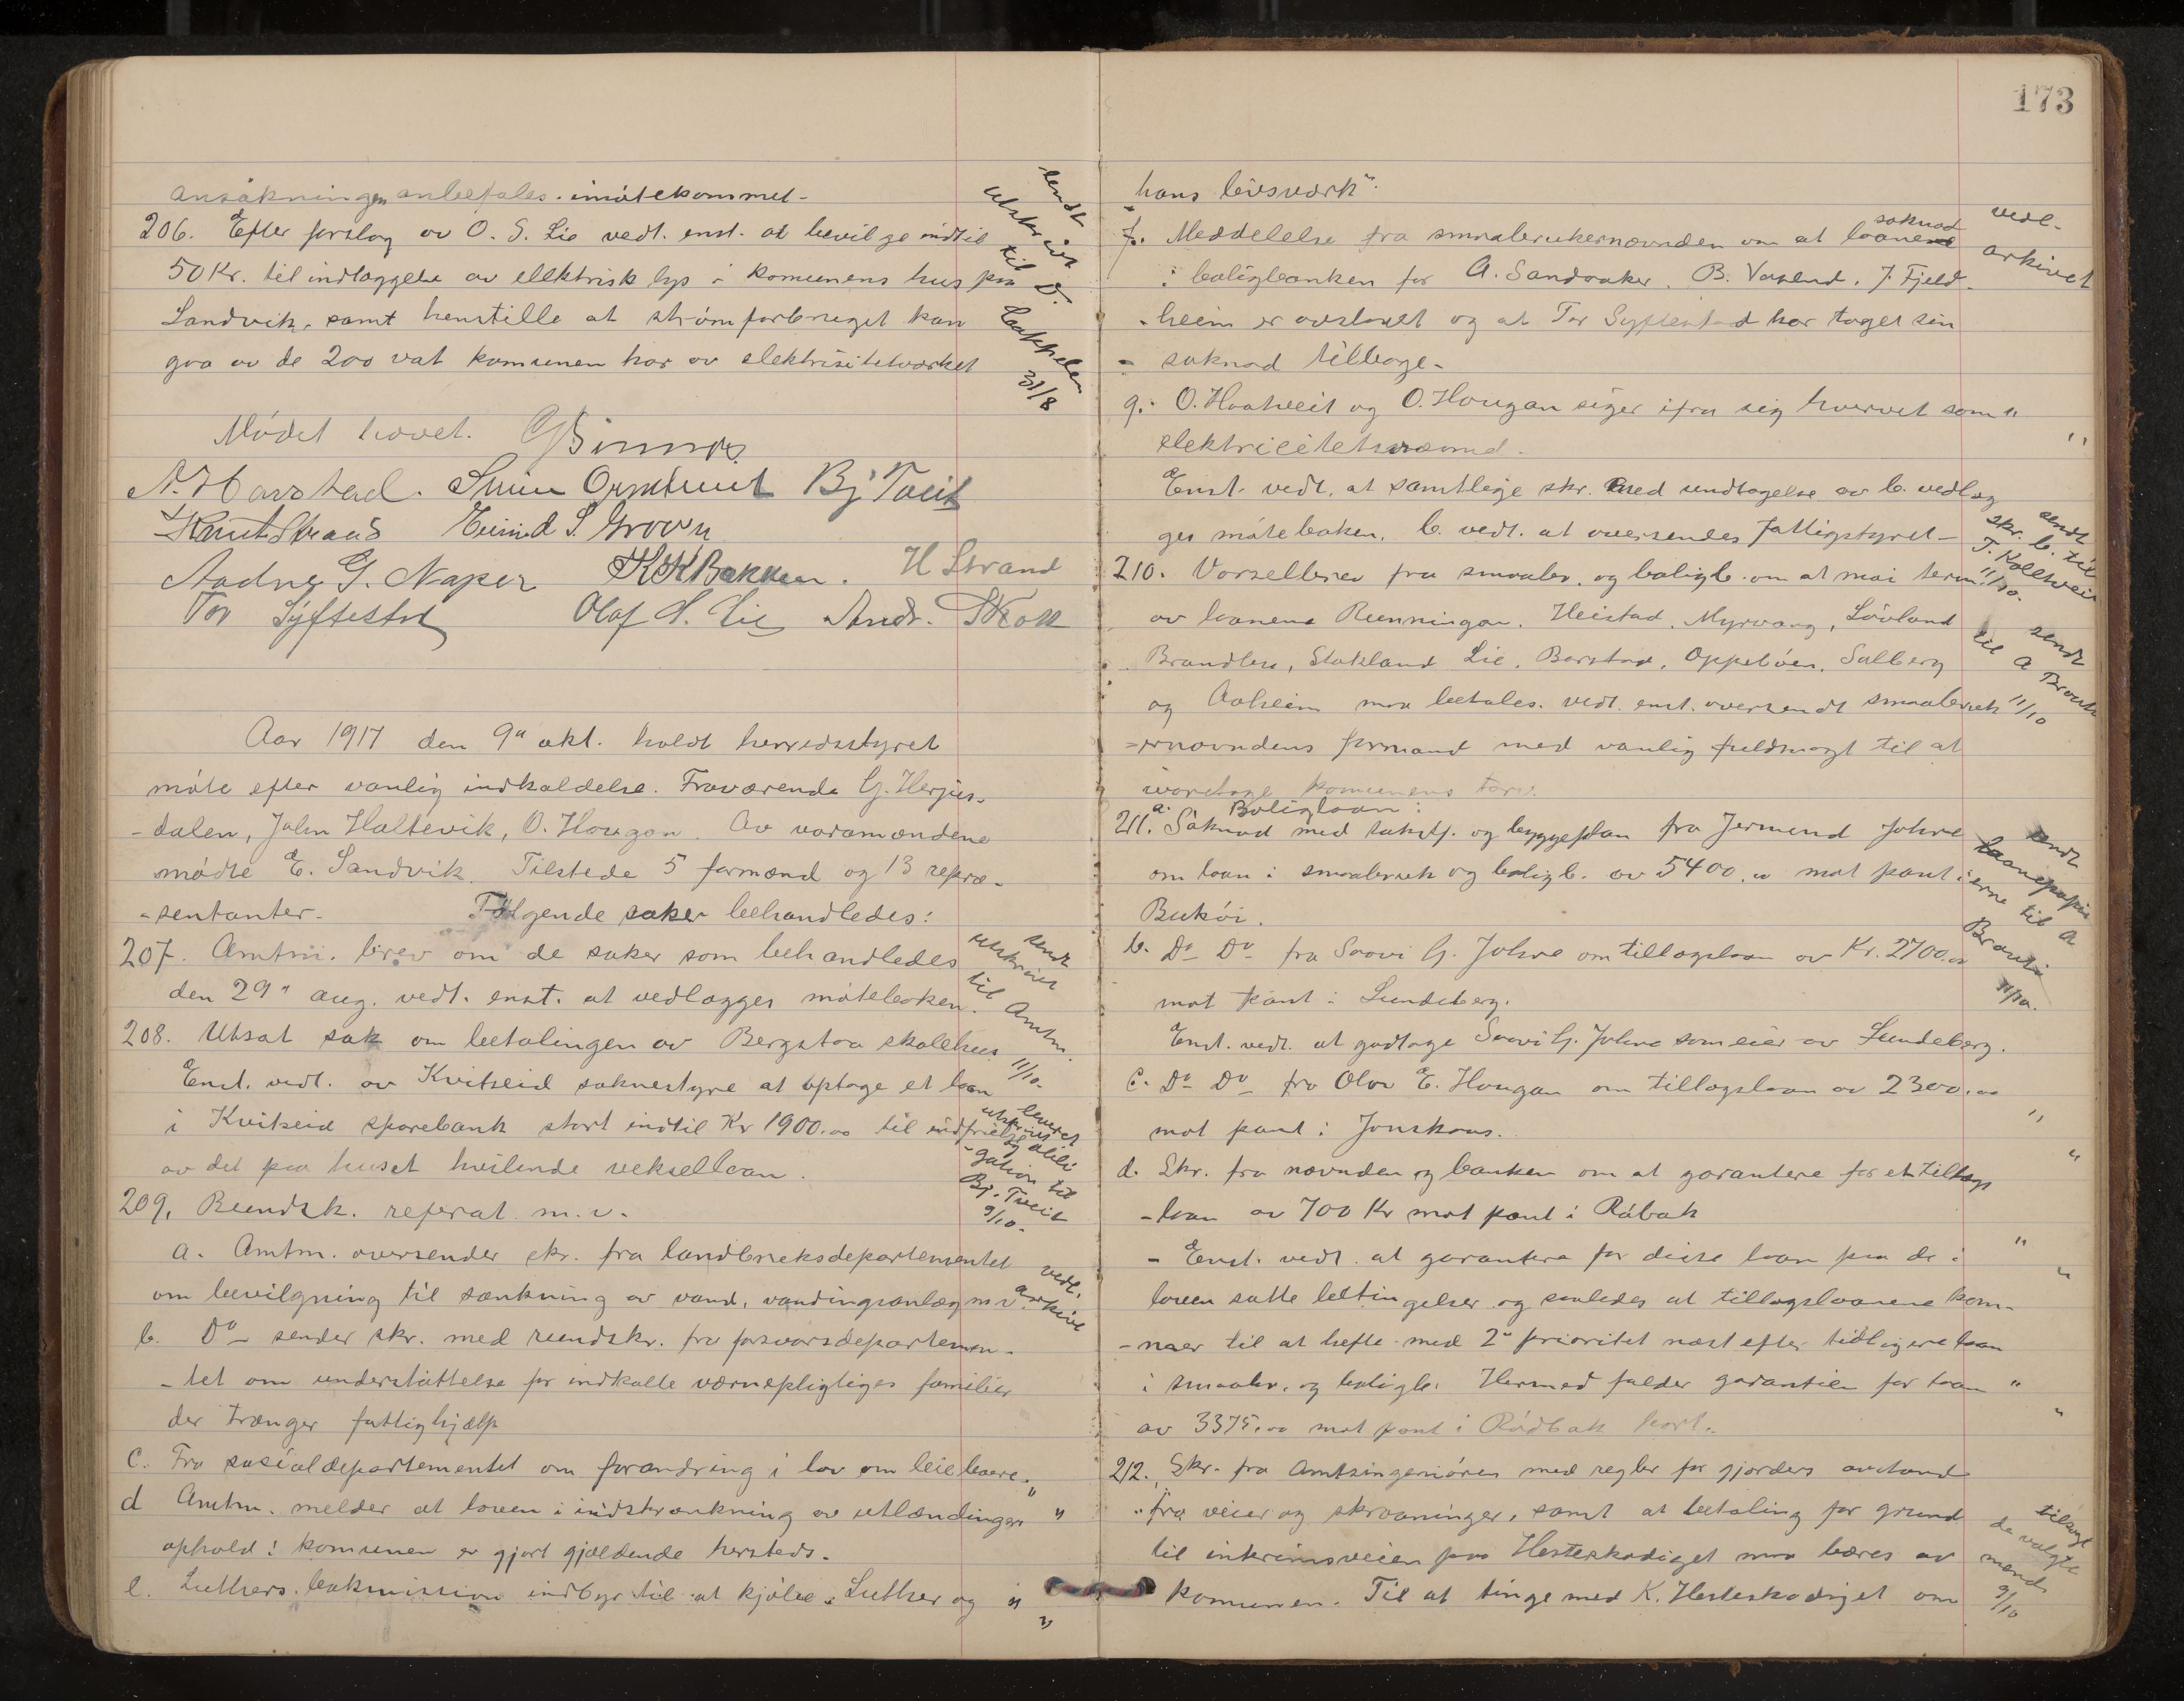 ansøkningen anbefales imøtekommet-
206. Efter forslag av O. S. Lie vedt. enst. at bevilge indtil
50 Kr. til indlæggelse av elektrisk lys i komunens hus paa
Sandvik, samt henstille at strømforbruget kan
gaa av de 200 vat komunen har av elektrisitetsværket
sendt
utskrift
til
31/8
Mødet hævet.
N. Havstad.
Bj Tveit
Knut Straand Eivind S. Groven
Aadne G. Naper KK Bakken. H Strand
Tor Syftestad Olaf S. Lie Andr. Skott
Aar 1917 den 9de okt. holdt herredsstyret
møte efter vanlig indkaldelse. Fraværende G. Herjus-
-dalen, John Haltevik, O. Hougan. Av varamændene
mødte E. Sandvik. Tilstede 5 formænd og 13 repræ-
-sentanter. Følgende saker behandledes:
207. Amtm. brev om de saker som behandledes
den 29de aug. vedt. enst. at vedlægges møteboken.
sendt
utskrift
til Amtm.
11/10.
208. Utsat sak om betalingen av Bergstaa skolehus
Enst. vedt. av Kvitseid soknestyre at optage et laan
i Kvitseid sparebank stort indtil Kr 1900.00 til indfrielse
av det paa huset hvilende veksellaan.
leveret
utskrift
og obli-
-gation til
Bj. Tveit
9/10.
209. Rundsk. referat m. v.
a. Amtm. oversender skr. fra landbruksdepartementet
om bevilgning til sænkning av vand, vandingsanlæg m. v.
vedl.
arkivet
b. Do- sender skr. med rundskr. fra forsvarsdepartemen-
-tet om understøttelse for indkalte værnepligtiges familier
der trænger fattighjælp
c. Fra socialdepartementet om forandring i lov om leieboere. "
d Amtm. melder at loven i indskrænkning av utlændingers "
ophold i komunen er gjort gjældende hersteds.
e. Luthers bokmission indbyr til at kjøbe „Luther og "
"
173
hans livsverk".
f. Meddelelse fra smaabrukernævnden om at laane søknad
i boligbanken for A. Sandvaker, B. Vaaland, J. Fjeld-
-heim er avslaaet og at Tor Syftestad har taget sin
- søknad tilbage-
vedl-
arkivet
g. O. Haatveit og O. Hougan siger ifra sig hvervet som "
elektricitetsnævnd. "
Enst. vedt. at samtlige skr. med undtagelse av b. vedlæg
ges møteboken. b. vedt. at oversendes fattigstyret-
sendt
skr. b. til
T. Kolltveit
11/10.
210. Varselbrev fra smaabr. og boligb. om at mai termin
av laanene Runningan, Heistad, Myrvang, Løvland
Brandlen, Stokland Lie, Barstad, Oppebøen, Solberg
og Aaheim maa betales. vedt. enst. oversendt smaabruk
-ernævndens formand med vanlig fuldmagt til at
ivaretage komunens tarv.
sendt
til A
11/10
Boliglaan:
211. a. Søknad med takstf. og byggeplan fra Jermund Johre
om laan i smaabruk og boligb. av 5400.00 mot pant i
Bukøi.
sendt
laanepapir
erne til A
11/10.
b. Do- Do- fra Saavi G. Johre om tillægslaan av Kr. 2700.00
mot pant i Lundeberg.
Enst. vedt. at godtage Saavi G. Johre som eier av Lundeberg.
c. Do- Do- fra Olav E. Hougan om tillægslaan av 2300.00
mot pant i Jonskaas. "
d. Skr. fra nævnden og banken om at garantere for et tillægs "
-laan av 700 Kr mot pant i Råbak
- Enst. vedt. at garantere for disse laan paa de i "
loven satte betingelser og saaledes at tillægslaanene kom- "
-mer til at hefte med 2den prioritet næst efter tidligere laan
i smaabr. og boligb. Hermed falder garantien for laan "
av 3375.00 mot pant i Rådbak bort. "
212. Skr. fra Amtsingeniøren med regler for gjærders avstand
fra veier og skraaninger, samt at betaling for grund
til interimsveien paa Hesteskodiget maa bæres av
komunen. Til at tinge med K. Hesteskodiget om
tilsagt
de valgte
mænd
9/10